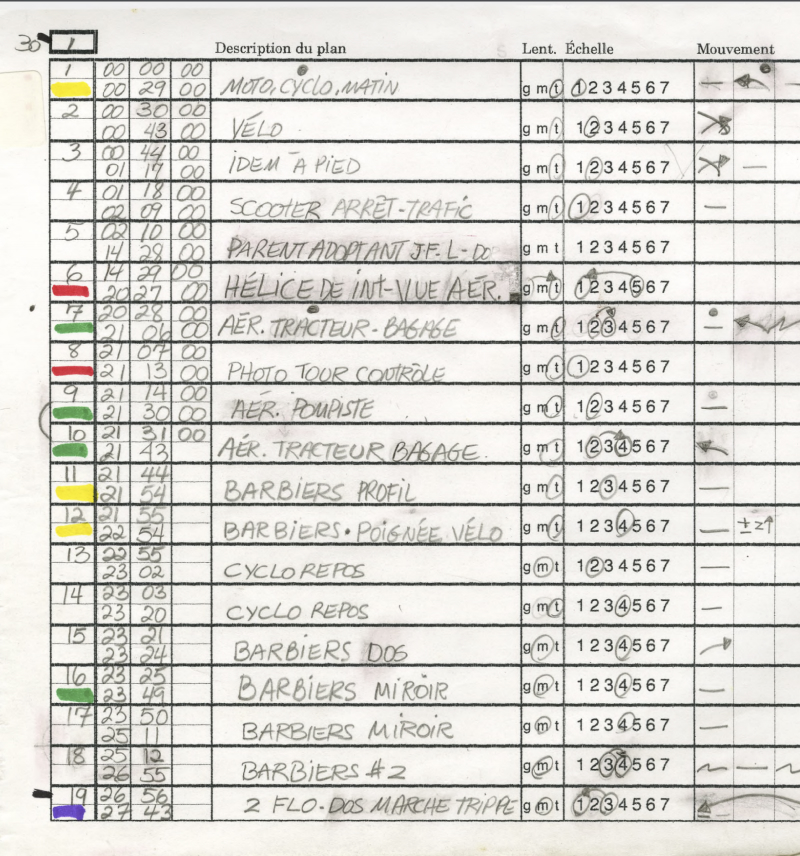 30 1
Description du plan Lent. Échelle Mouvement
1 00 00 00
00 29 00 MOTO, CYCLO, MATIN g m t 1 2 3 4 5 6 7
2 00 30 00
00 43 00 VÉLO g m t 1 2 3 4 5 6 7
3 00 44 00
01 17 00 IDEM À PIED g m t 1 2 3 4 5 6 7
4 01 18 00
02 09 00 SCOOTER ARRÊT-TRAFIC g m t 1 2 3 4 5 6 7
5 02 10 00
14 28 00 PARENT ADOPTANT JF. L-DO g m t 1 2 3 4 5 6 7
6 14 29 00
20 27 00 HÉLICE DE INT-VUE AÉR. g m t 1 2 3 4 5 6 7
7 20 28 00
21 06 00 AÉR. TRACTEUR-BAGAGE g m t 1 2 3 4 5 6 7
8 21 07 00
21 13 00 PHOTO TOUR CONTRÔLE g m t 1 2 3 4 5 6 7
9 21 14 00
21 30 00 AÉR. POMPISTE g m t 1 2 3 4 5 6 7
10 21 31 00
21 43 AÉR. TRACTEUR BAGAGE. g m t 1 2 3 4 5 6 7
11 21 44
21 54 BARBIERS PROFIL g m t 1 2 3 4 5 6 7
12 21 55
22 54 BARBIERS • POIGNÉE VÉLO g m t 1 2 3 4 5 6 7 ± z ↑
13 22 55
23 02 CYCLO REPOS g m t 1 2 3 4 5 6 7
14 23 03
23 20 CYCLO REPOS g m t 1 2 3 4 5 6 7
15 23 21
23 24 BARBIERS DOS g m t 1 2 3 4 5 6 7
16 23 25
23 49 BARBIERS MIROIR g m t 1 2 3 4 5 6 7
17 23 50
25 11 BARBIERS MIROIR g m t 1 2 3 4 5 6 7
18 25 12
26 55 BARBIERS #2 g m t 1 2 3 4 5 6 7
19 26 56
27 43 2 FLO-DOS MARCHE TRIPPE g m t 1 2 3 4 5 6 7